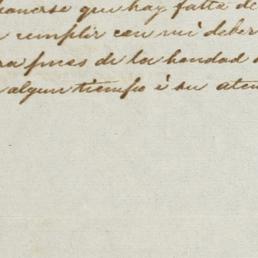 que hay falta de
cumplir con mi deber
pues de la bondad
algun tiempo é su aten